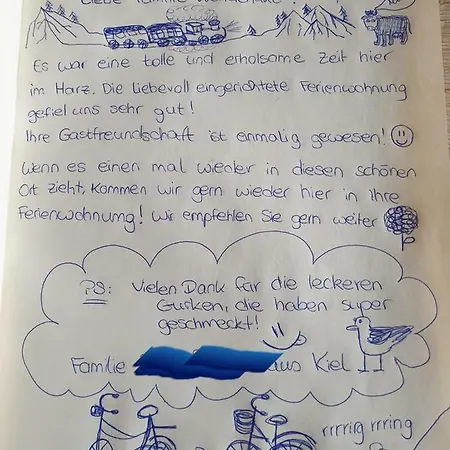 Liebe Familie
Es war eine tolle und erholsame Zeit hier
im Harz. Die liebevoll eingerichtete Ferienwohnung
gefiel uns sehr gut!
Ihre Gastfreundschaft ist einmalig gewesen!
Wenn es einen mal wieder in diesen schönen
Ort zieht, kommen wir gern wieder hier in Ihre
Ferienwohnung! Wir empfehlen Sie gern weiter
PS: Vielen Dank für die leckeren
Gurken, die haben super
geschmeckt!
Familie aus Kiel
rrrrig rrring